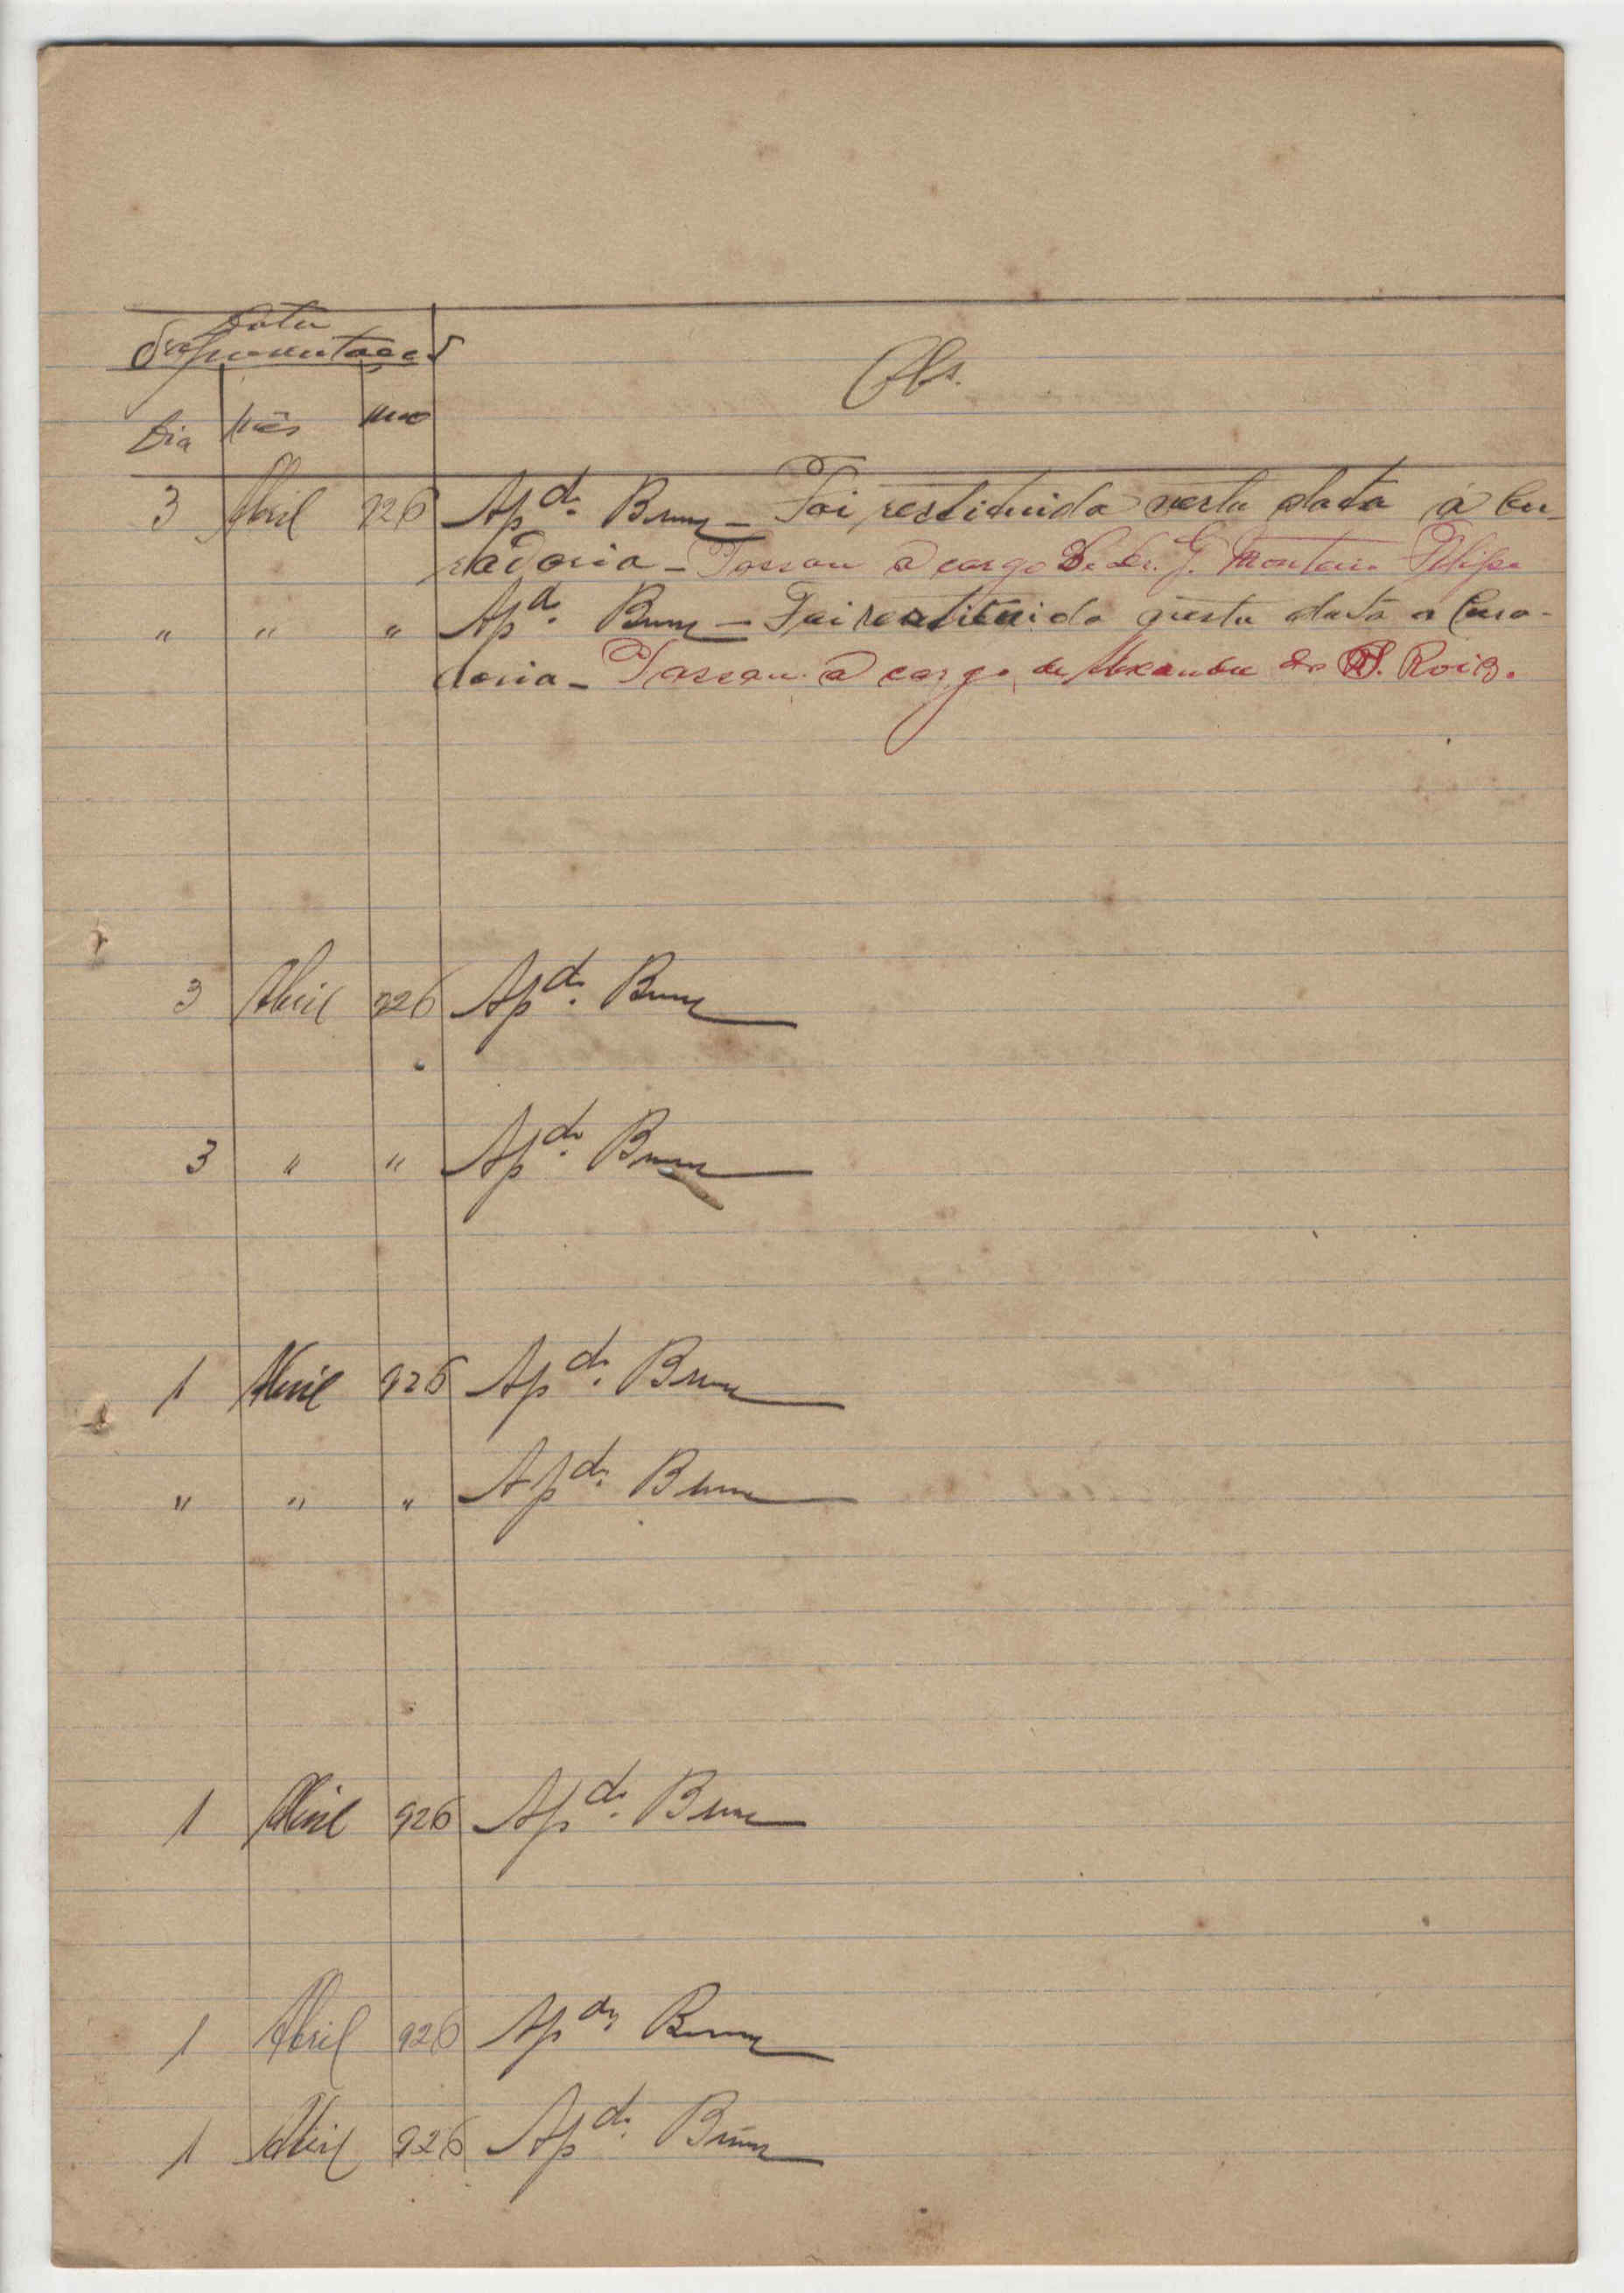 Data
d'apresentação
Dia Mês Ano
Obs.
3 Abril 926 Apdo. Bruny — Foi restituida nesta data á Cu-
radoria — Passou a cargo de Dr. G. Monteiro Filipe
" " " Apdo. Bruny — Foi restituido nesta data a Cura-
doria — Passou a cargo de Alexandre de S. Roiz.
3 Abril 926 Apdo.
3 " " Apdo.
1 Abril 926 Apdo.
" " " Apdo.
1 Abril 926 Apdo.
1 Abril 926 Apdo.
1 Abril 926 Apdo.